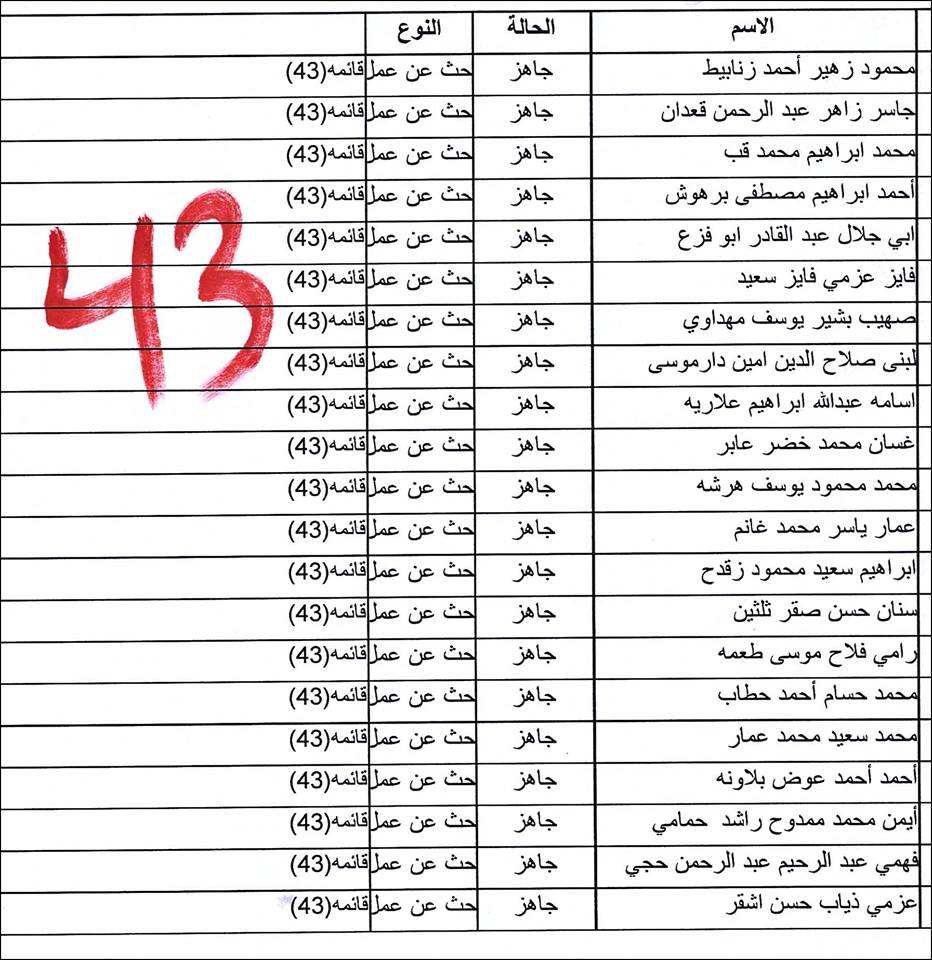 الاسم الحالة النوع
محمود زهير أحمد زنابيط جاهز حث عن عمل قائمه(43)
جاسر زاهر عبد الرحمن قعدان جاهز حث عن عمل قائمه(43)
محمد ابراهيم محمد قب جاهز حث عن عمل قائمه(43)
أحمد ابراهيم مصطفى برهوش جاهز حث عن عمل قائمه(43)
ابي جلال عبد القادر ابو فزع جاهز حث عن عمل قائمه(43)
فايز عزمي فايز سعيد جاهز حث عن عمل قائمه(43)
صهيب بشير يوسف مهداوي جاهز حث عن عمل قائمه(43)
لبنى صلاح الدين امين دارموسى جاهز حث عن عمل قائمه(43)
اسامه عبدالله ابراهيم علاريه جاهز حث عن عمل قائمه(43)
غسان محمد خضر عابر جاهز حث عن عمل قائمه(43)
محمد محمود يوسف هرشه جاهز حث عن عمل قائمه(43)
عمار ياسر محمد غانم جاهز حث عن عمل قائمه(43)
ابراهيم سعيد محمود زقدح جاهز حث عن عمل قائمه(43)
سنان حسن صقر ثلثين جاهز حث عن عمل قائمه(43)
رامي فلاح موسى طعمه جاهز حث عن عمل قائمه(43)
محمد حسام أحمد حطاب جاهز حث عن عمل قائمه(43)
محمد سعيد محمد عمار جاهز حث عن عمل قائمه(43)
أحمد أحمد عوض بلاونه جاهز حث عن عمل قائمه(43)
أيمن محمد ممدوح راشد حمامي جاهز حث عن عمل قائمه(43)
فهمي عبد الرحيم عبد الرحمن حجي جاهز حث عن عمل قائمه(43)
عزمي ذياب حسن اشقر جاهز حث عن عمل قائمه(43)
43